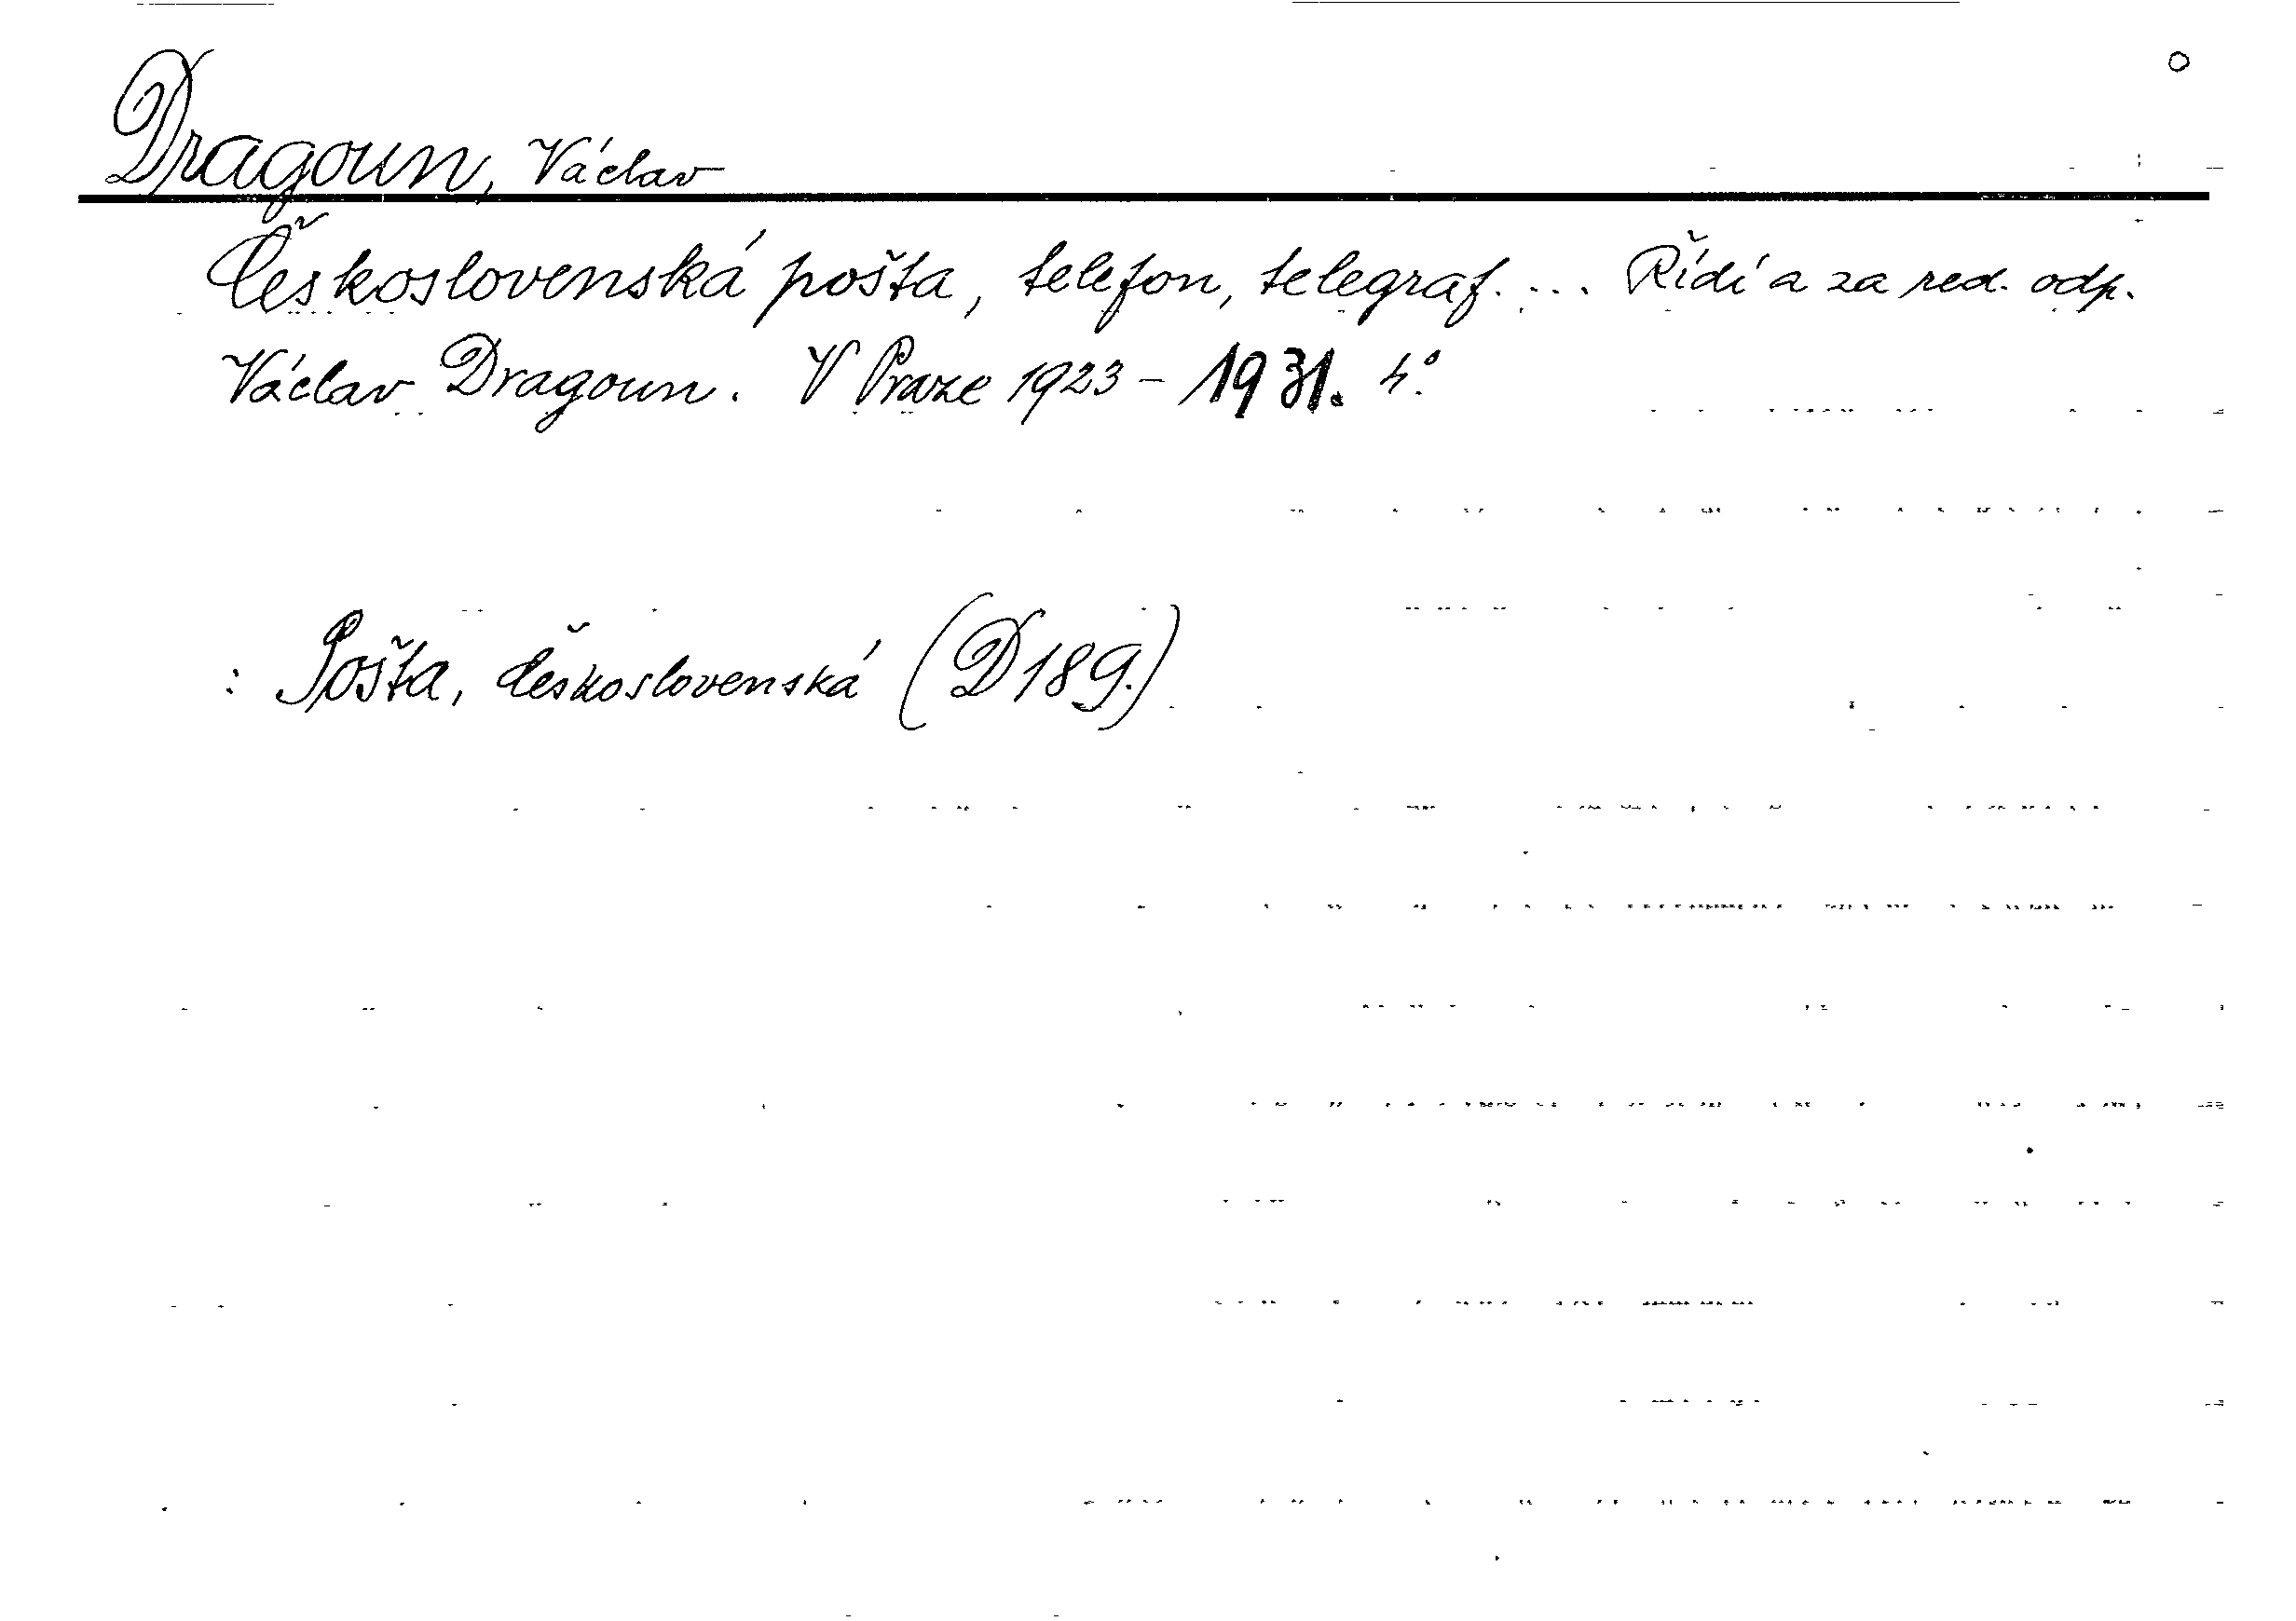 Dragoun, Václav
Československá pošta, telefon, telegraf. ... Řídí a za red. odp.
Václav Dragoun. V Praze 1923 - 1931. 4°.
: Pošta, československá (D 189.)